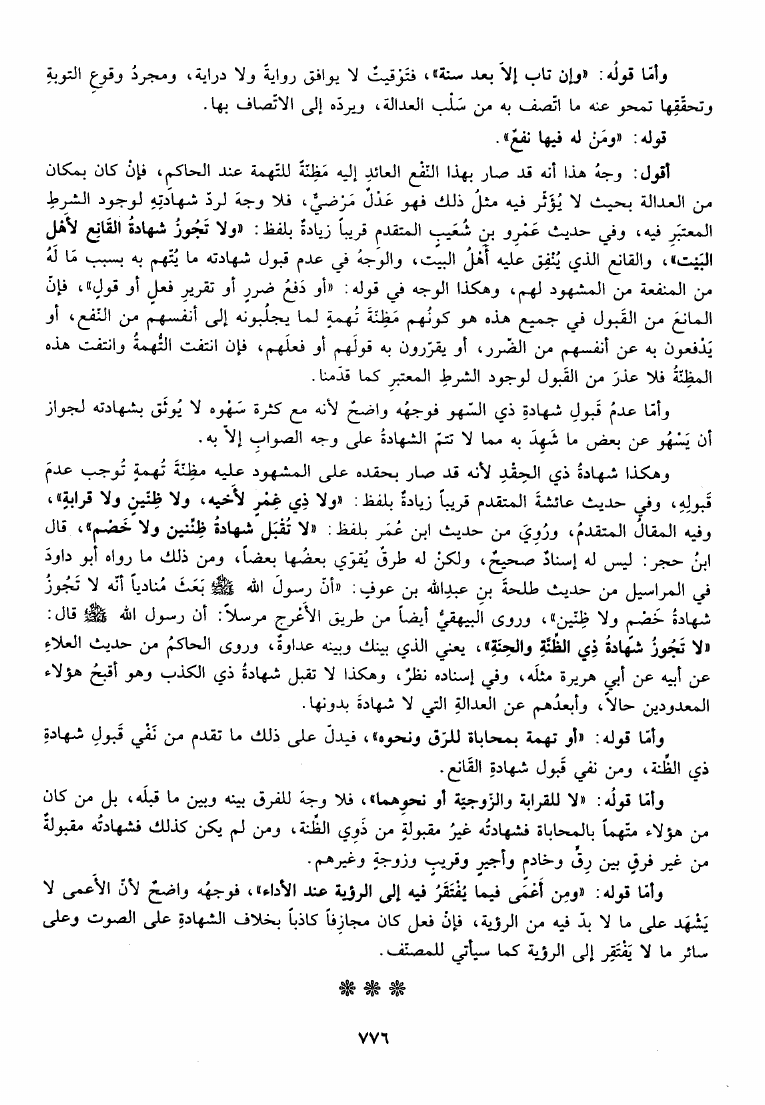 وأمّا قولُه: «وإن تاب إلاّ بعد سنة»، فتَوْقيتٌ لا يوافق روايةً ولا دراية، ومجردُ وقوعِ التوبةِ
وتحقّقِها تمحو عنه ما اتّصف به من سَلْب العدالة، ويردّه إلى الاتّصاف بها.
قوله: «ومَنْ له فيها نفعٌ».
أقول: وجهُ هذا أنه قد صار بهذا النّفْع العائدِ إليه مَظِنّةً للتّهمة عند الحاكم، فإنْ كان بمكان
من العدالة بحيث لا يُؤَثّر فيه مثلُ ذلك فهو عَدْلٌ مَرْضيٌّ، فلا وجهَ لردّ شهادَتِهِ لوجود الشرطِ
المعتبَرِ فيه، وفي حديث عَمْرِو بنِ شُعَيبٍ المتقدمِ قريباً زيادةٌ بلفظ: «ولا تَجُوزُ شهادةُ القَانِعِ لأهل
البَيْت»، والقانع الذي يُنْفِق عليه أهْلُ البيت، والوَجهُ في عدم قبول شهادته ما يُتّهم به بسبب مَا لَهُ
من المنفعة من المشهود لهم، وهكذا الوجه في قوله: «أو دَفعُ ضررٍ أو تقريرِ فعلٍ أو قولٍ»، فإنّ
المانعَ من القَبول في جميع هذه هو كونُهم مَظِنّةَ تُهمةٍ لما يجلُبونه إلى أنفسهم من النّفع، أو
يَدْفعون به عن أنفسهم من الضّرر، أو يقرّرون به قولَهم أو فعلَهم، فإن انتفت التُّهمةُ وانتفت هذه
المظِنّةُ فلا عذرَ من القَبول لوجود الشرطِ المعتبرِ كما قدّمنا.
وأمّا عدمُ قَبولِ شهادةِ ذي السّهو فوجهُه واضحٌ لأنه مع كثرة سَهْوِه لا يُوثَق بشهادته لجواز
أن يَسْهُوَ عن بعض ما شَهِدَ به مما لا تتمّ الشهادةُ على وجه الصوابِ إلاّ به.
وهكذا شهادةُ ذي الحِقْدِ لأنه قد صار بحقده على المشهود عليه مظِنّةَ تُهمةٍ تُوجب عدمَ
قَبولِهِ، وفي حديث عائشةَ المتقدم قريباً زيادةٌ بلفظ: «ولا ذي غِمْرٍ لأخيه، ولا ظَنينٍ ولا قرابةٍ»،
وفيه المقالُ المتقدمُ، ورُوِيَ من حديث ابن عُمَر بلفظ: «لا تُقْبَل شهادةُ ظَنينٍ ولا خَصْم»، قال
ابنُ حجر: ليس له إسنادٌ صحيحٌ، ولكنْ له طرقٌ يُقوّي بعضُها بعضاً، ومن ذلك ما رواه أبو داودَ
في المراسيل من حديث طلحةَ بنِ عبدِالله بن عوفٍ: «أنّ رسولَ الله ﷺ بَعَثَ مُنادياً أنّه لا تَجُوزُ
شهادةُ خَصْمٍ ولا ظَنِّينٍ»، وروى البيهقيُّ أيضاً من طريق الأعْرج مرسلاً: أن رسول الله ﷺ قال:
«لا تَجُوزُ شهادةُ ذي الظِّنَّةِ والحِنَةِ»، يعني الذي بينك وبينه عداوةٌ، وروى الحاكمُ من حديث العلاءِ
عن أبيه عن أبي هريرة مثلَه، وفي إسناده نظرٌ، وهكذا لا تقبل شهادةُ ذي الكذب وهو أقبحُ هؤلاء
المعدودين حالاً، وأبعدُهم عن العدالةِ التي لا شهادةَ بدونها.
وأمّا قوله: «أو تهمة بمحاباة للرّق ونحوه»، فيدلّ على ذلك ما تقدم من نَفْيِ قَبولِ شهادةِ
ذي الظِّنة، ومن نفي قَبول شهادةِ القَانع.
وأمّا قولُه: «لا للقرابة والزّوجيّة أو نحوهما»، فلا وجهَ للفرق بينه وبين ما قبلَه، بل من كان
من هؤلاء متّهماً بالمحاباة فشهادتُه غيرُ مقبولةٍ من ذَوِي الظّنة، ومن لم يكن كذلك فشهادتُه مقبولةٌ
من غير فرقٍ بين رِقٍّ وخادمٍ وأجيرٍ وقريبٍ وزوجةٍ وغيرِهم.
وأمّا قوله: «ومِن أعْمَى فيما يُفْتَقَرُ فيه إلى الرؤية عند الأداء»، فوجهُه واضحٌ لأنّ الأعمى لا
يَشْهَد على ما لا بدّ فيه من الرؤية، فإنْ فعل كان مجازِفاً كاذباً بخلاف الشهادةِ على الصوت وعلى
سائر ما لا يَفْتَقِر إلى الرؤية كما سيأتي للمصنّف.
٧٧٦